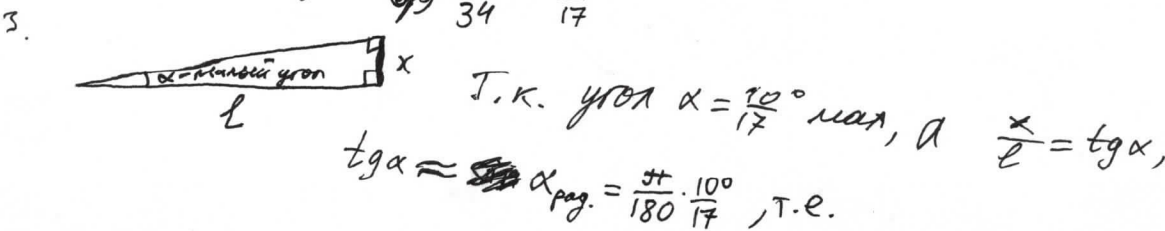 34 17
3.
α-малый угол
x
l
Т.к. угол α = 10°/17 мал, а x/l = tgα,
tgα ≈ α рад. = π/180 · 10°/17, т.е.